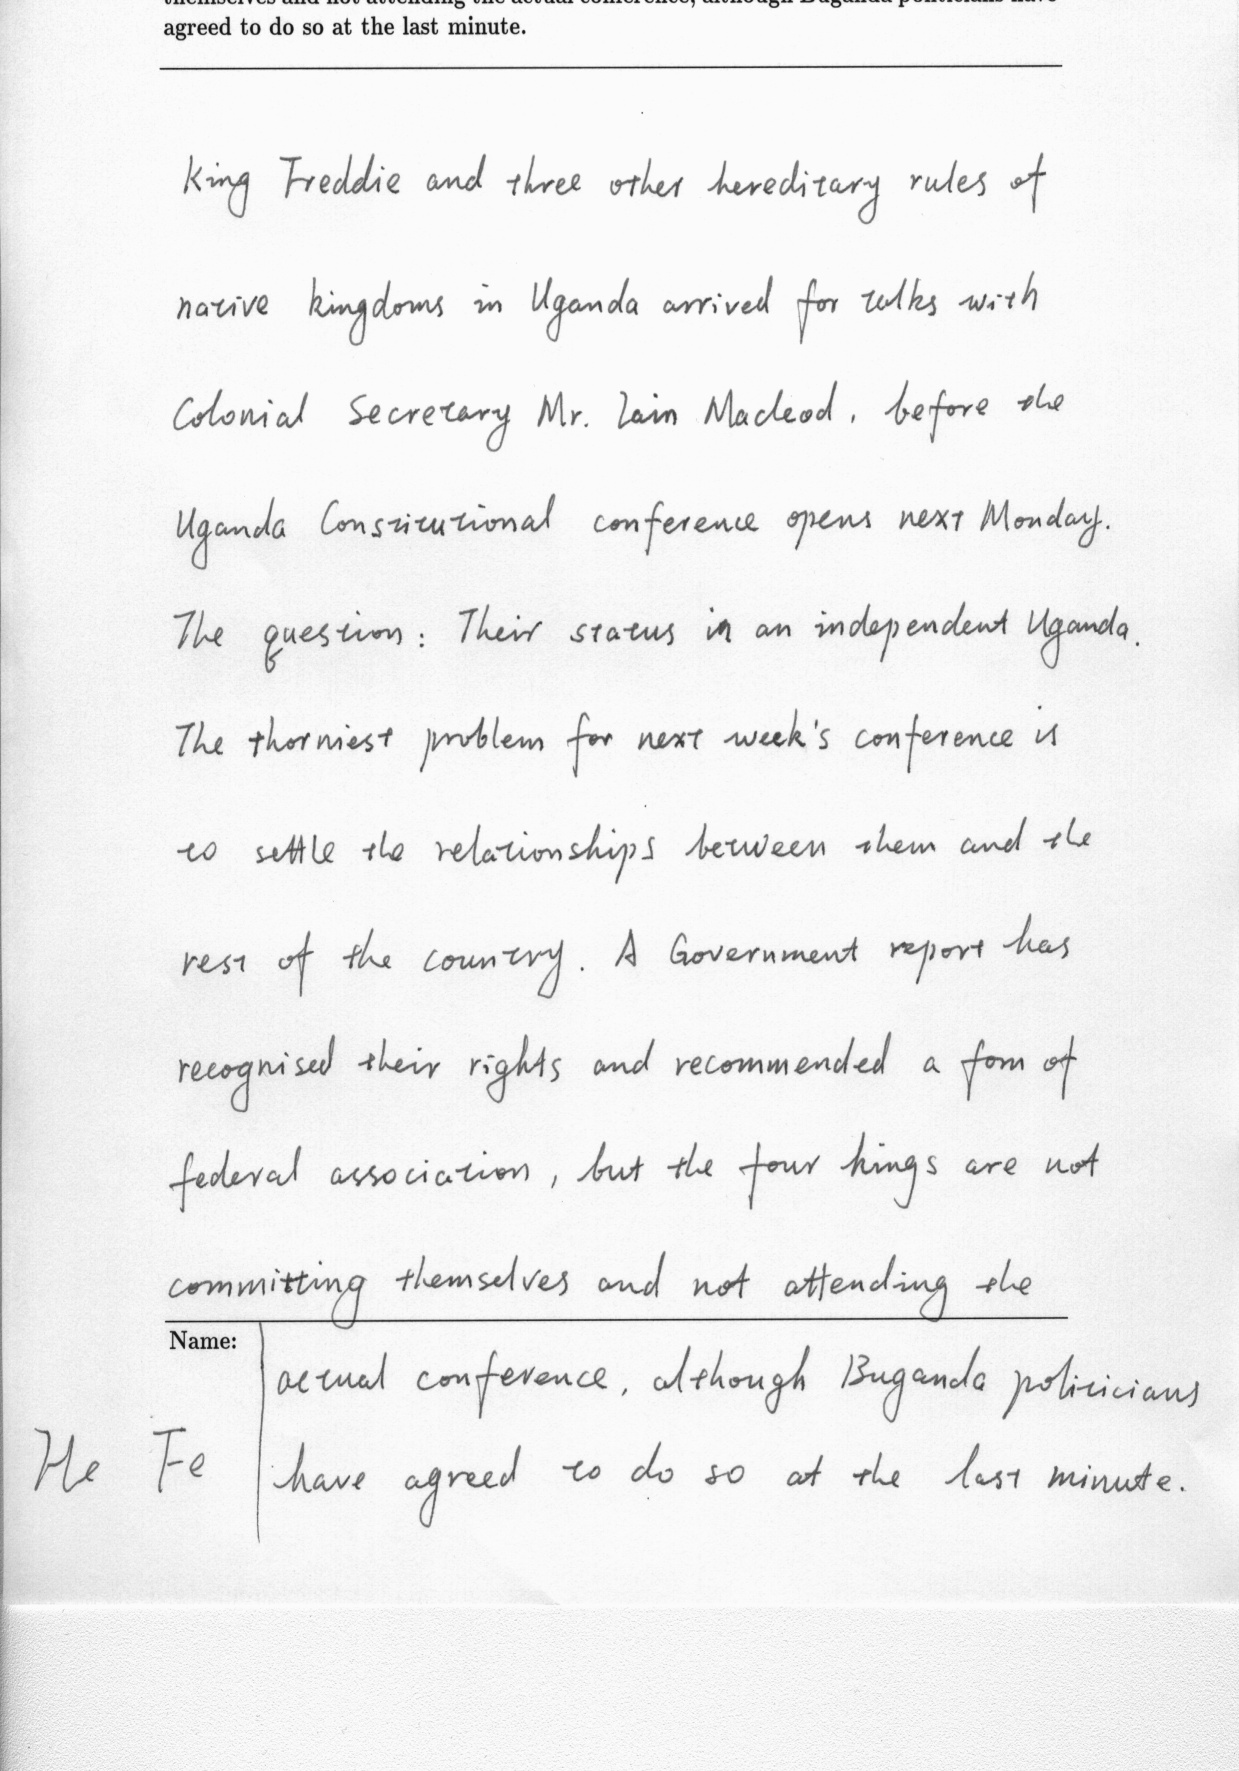 themselves and not attending the actual conference, although Buganda politicians have
agreed to do so at the last minute.
King Freddie and three other hereditary rules of
native kingdoms in Uganda arrived for talks with
Colonial Secretary Mr. Iain Macleod, before the
Uganda Constitutional conference opens next Monday.
The question: Their status in an independent Uganda.
The thorniest problem for next week's conference is
to settle the relationships between them and the
rest of the country. A Government report has
recognised their rights and recommended a fom of
federal association, but the four kings are not
committing themselves and not attending the
Name:
actual conference, although Buganda politicians
He Fe
have agreed to do so at the last minute.